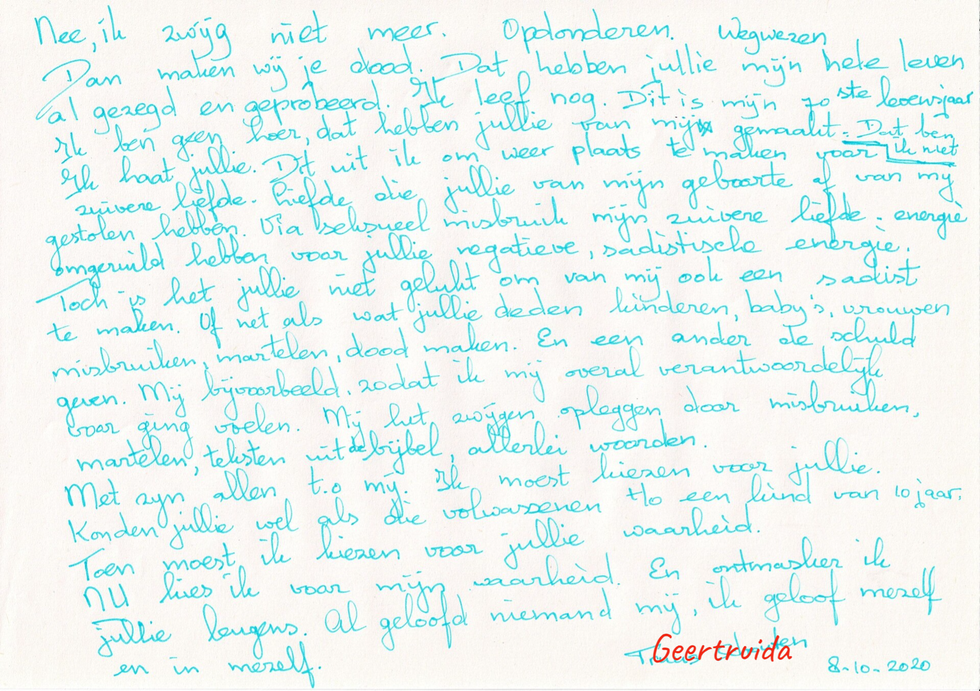 Nee, ik zwijg niet meer. Opdonderen. Wegwezen
Dan maken wij je dood. Dat hebben jullie mijn hele leven
al gezegd en geprobeerd. Ik leef nog. Dit is mijn 70 ste levensjaar
Ik ben geen hoer, dat hebben jullie van mij gemaakt. Dat ben
ik niet
Ik haat jullie. Dit uit ik om weer plaats te maken voor
zuivere liefde. Liefde die jullie van mijn geboorte af van mij
gestolen hebben. Via seksueel misbruik mijn zuivere liefde-energie
omgeruild hebben voor jullie negatieve, sadistische energie.
Toch is het jullie niet gelukt om van mij ook een sadist
te maken. Of net als wat jullie deden kinderen, baby's, vrouwen
misbruiken, martelen, dood maken. En een ander de schuld
geven. Mij bijvoorbeeld, zodat ik mij overal verantwoordelijk
voor ging voelen. Mij het zwijgen opleggen door misbruiken,
martelen, teksten uit de bijbel, allerlei woorden.
Met zijn allen t.o mij. Ik moest kiezen voor jullie.
Konden jullie wel als die volwassenen t/o een kind van 10 jaar.
Toen moest ik kiezen voor jullie waarheid.
NU kies ik voor mijn waarheid. En ontmasker ik
jullie leugens. Al geloofd niemand mij, ik geloof mezelf
en in mezelf.
Geertruida
8-10-2020